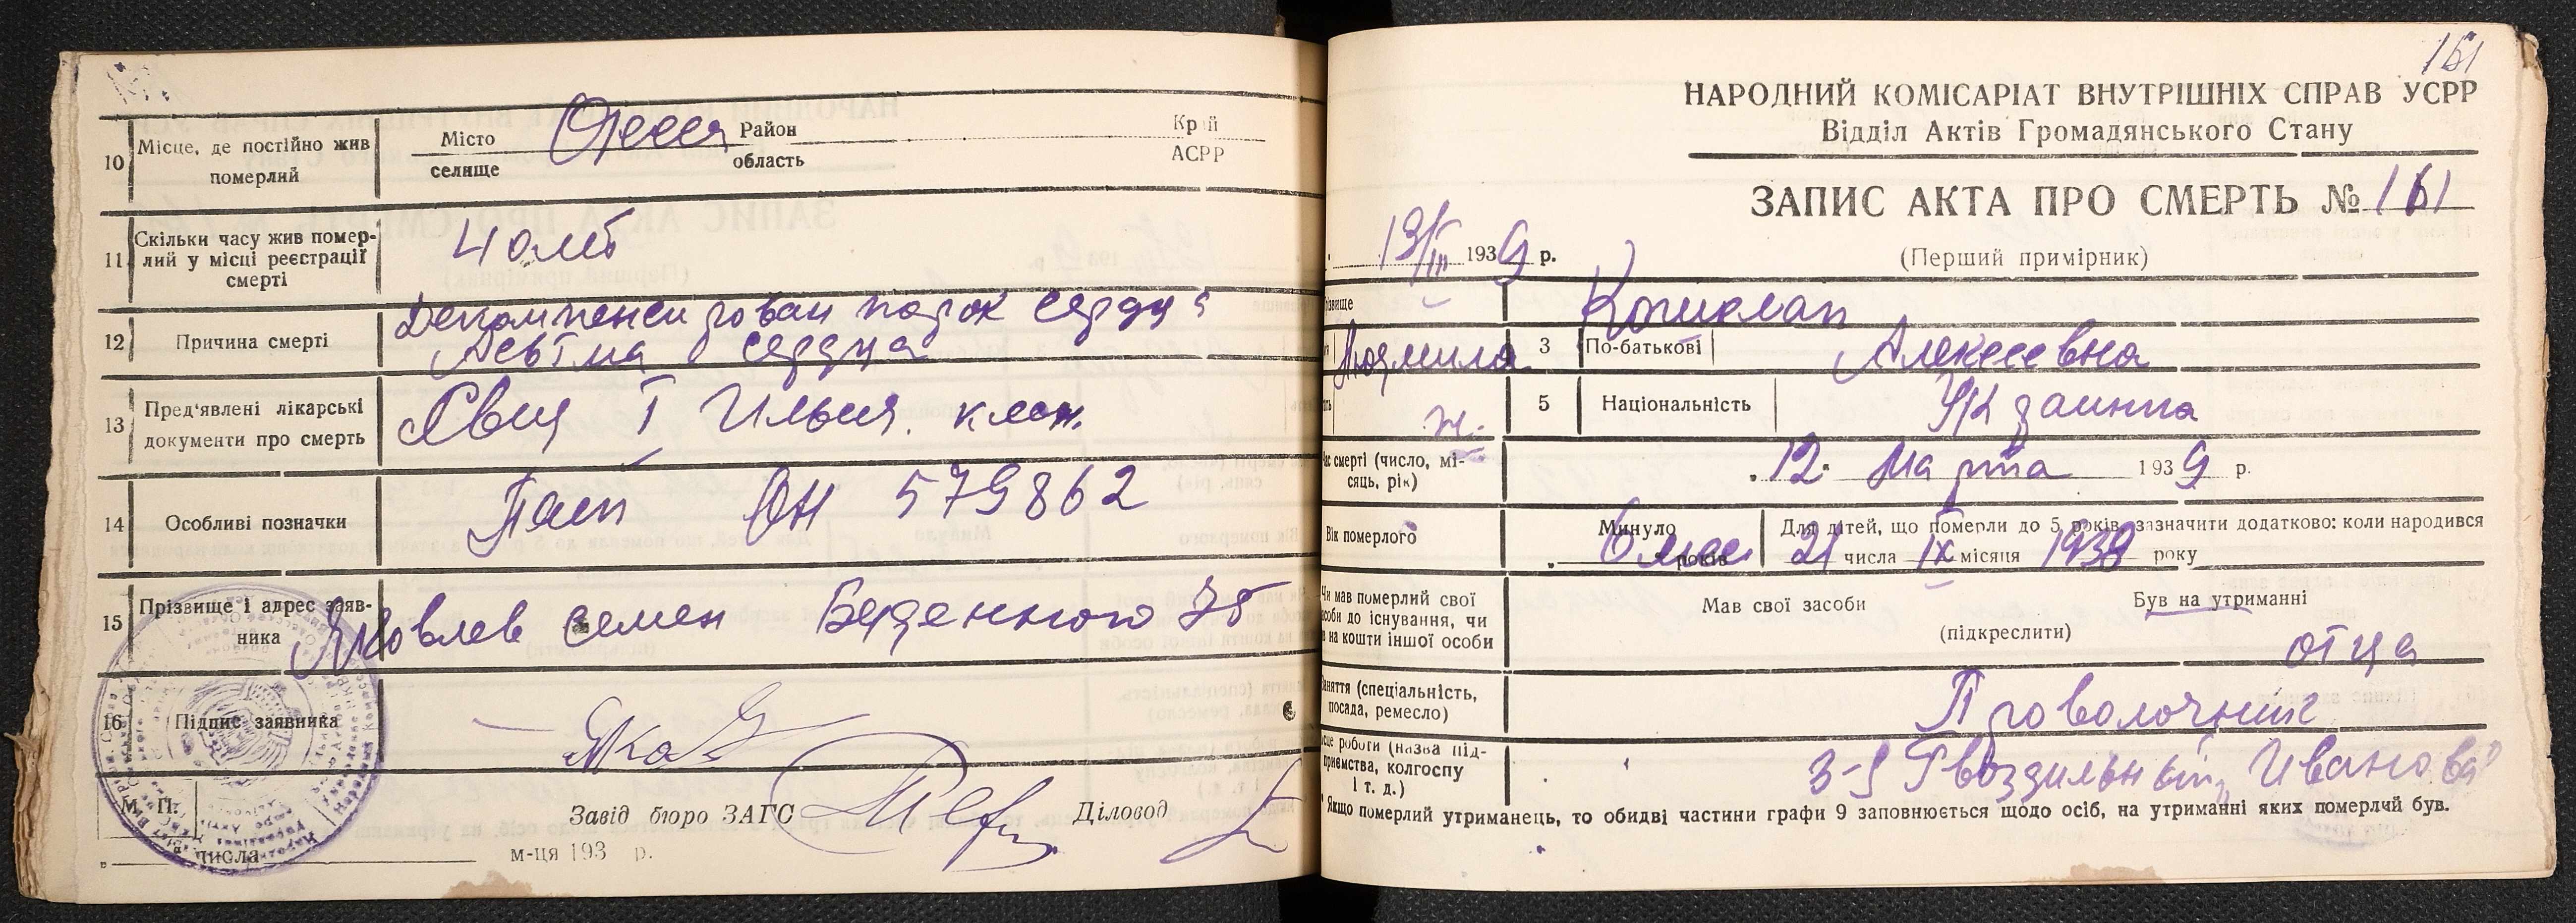 10 Місце, де постійно жив померлий
Місто селище Одесса Район область Край АСРР
11 Скільки часу жив помер-
лий у місці реєстрації
смерті
12 Причина смерті
порок сердца
сердца
13 Пред'явлені лікарські
документи про смерть
14 Особливі позначки
Пасп ОН 579862
15 Прізвище і адрес заяв-
ника
Яковлев Семен 75
16 Підпис заявника
М. П.
Завід бюро ЗАГС
Діловод
" числа м-ця 193 р.
161
НАРОДНИЙ КОМІСАРІАТ ВНУТРІШНІХ СПРАВ УСРР
Відділ Актів Громадянського Стану
ЗАПИС АКТА ПРО СМЕРТЬ № 161
(Перший примірник)
13/III 1939 р.
ізвище
Людмила 3 По-батькові Алексеевна
ж. 5 Національність Украинка
ас смерті (число, мі-
сяць, рік)
12 марта 1939 р.
Вік померлого
Минуло 6 мес років
Для дітей, що померли до 5 років, зазначити додатково: коли народився
21 числа IX місяця 1938 року
Чи мав померлий свої
соби до існування, чи
в на кошти іншої особи
Мав свої засоби Був на утриманні
(підкреслити)
отца
аняття (спеціальність,
посада, ремесло)
Проволочник
сце роботи (назва під-
приємства, колгоспу
і т. д.)
З-д Гвоздильный Иванова
Якщо померлий утриманець, то обидві частини графи 9 заповнюється щодо осіб, на утриманні яких померлий був.